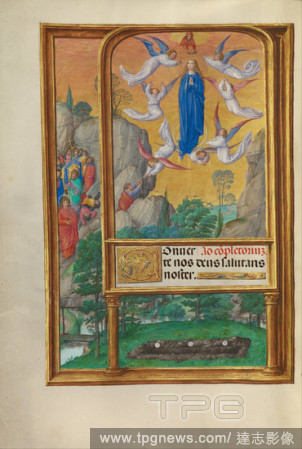 Onuer Ad cōpletoriuz.
te nos deus salutaris
noster.
TPG
www.tpgnews.com / 達志影像